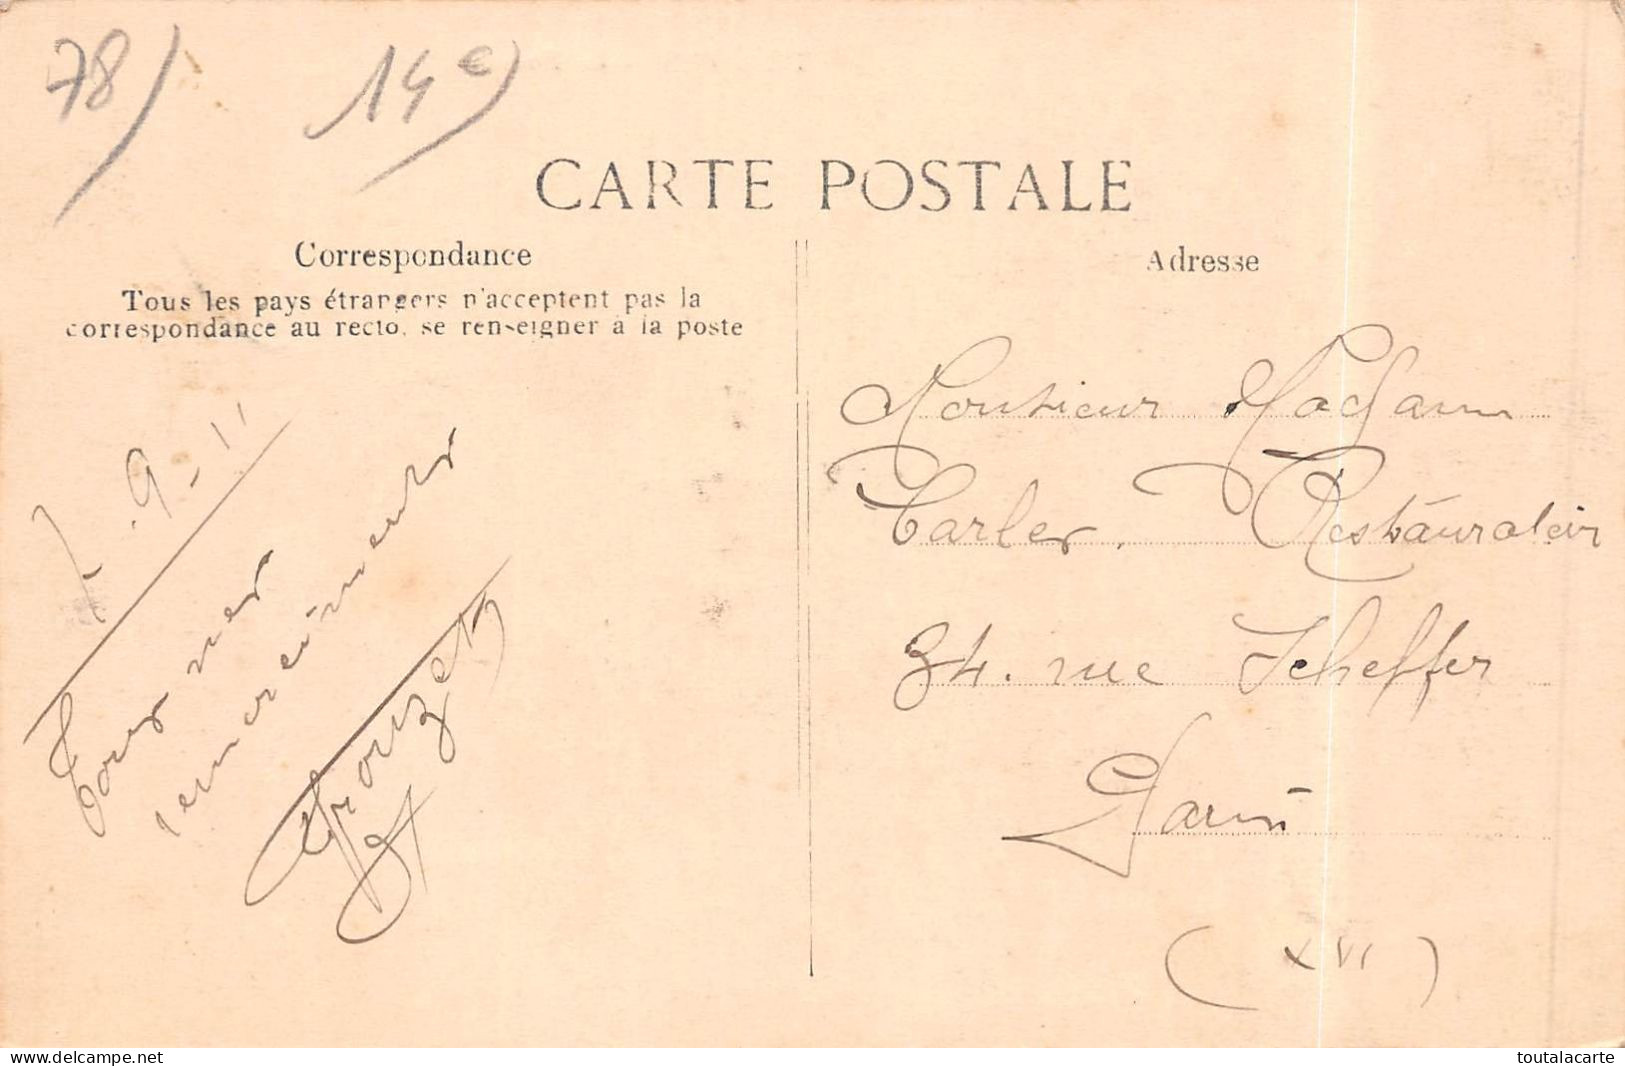 78)
14€)
CARTE POSTALE
Correspondance
Tous les pays étrangers n'acceptent pas la
correspondance au recto, se renseigner à la poste
9-11
Tous mes
remerciements
Adresse
Monsieur Madame
Tarler. Restaurateur
34. rue Scheffer
Paris
(XVI)
www.delcampe.net
toutalacarte